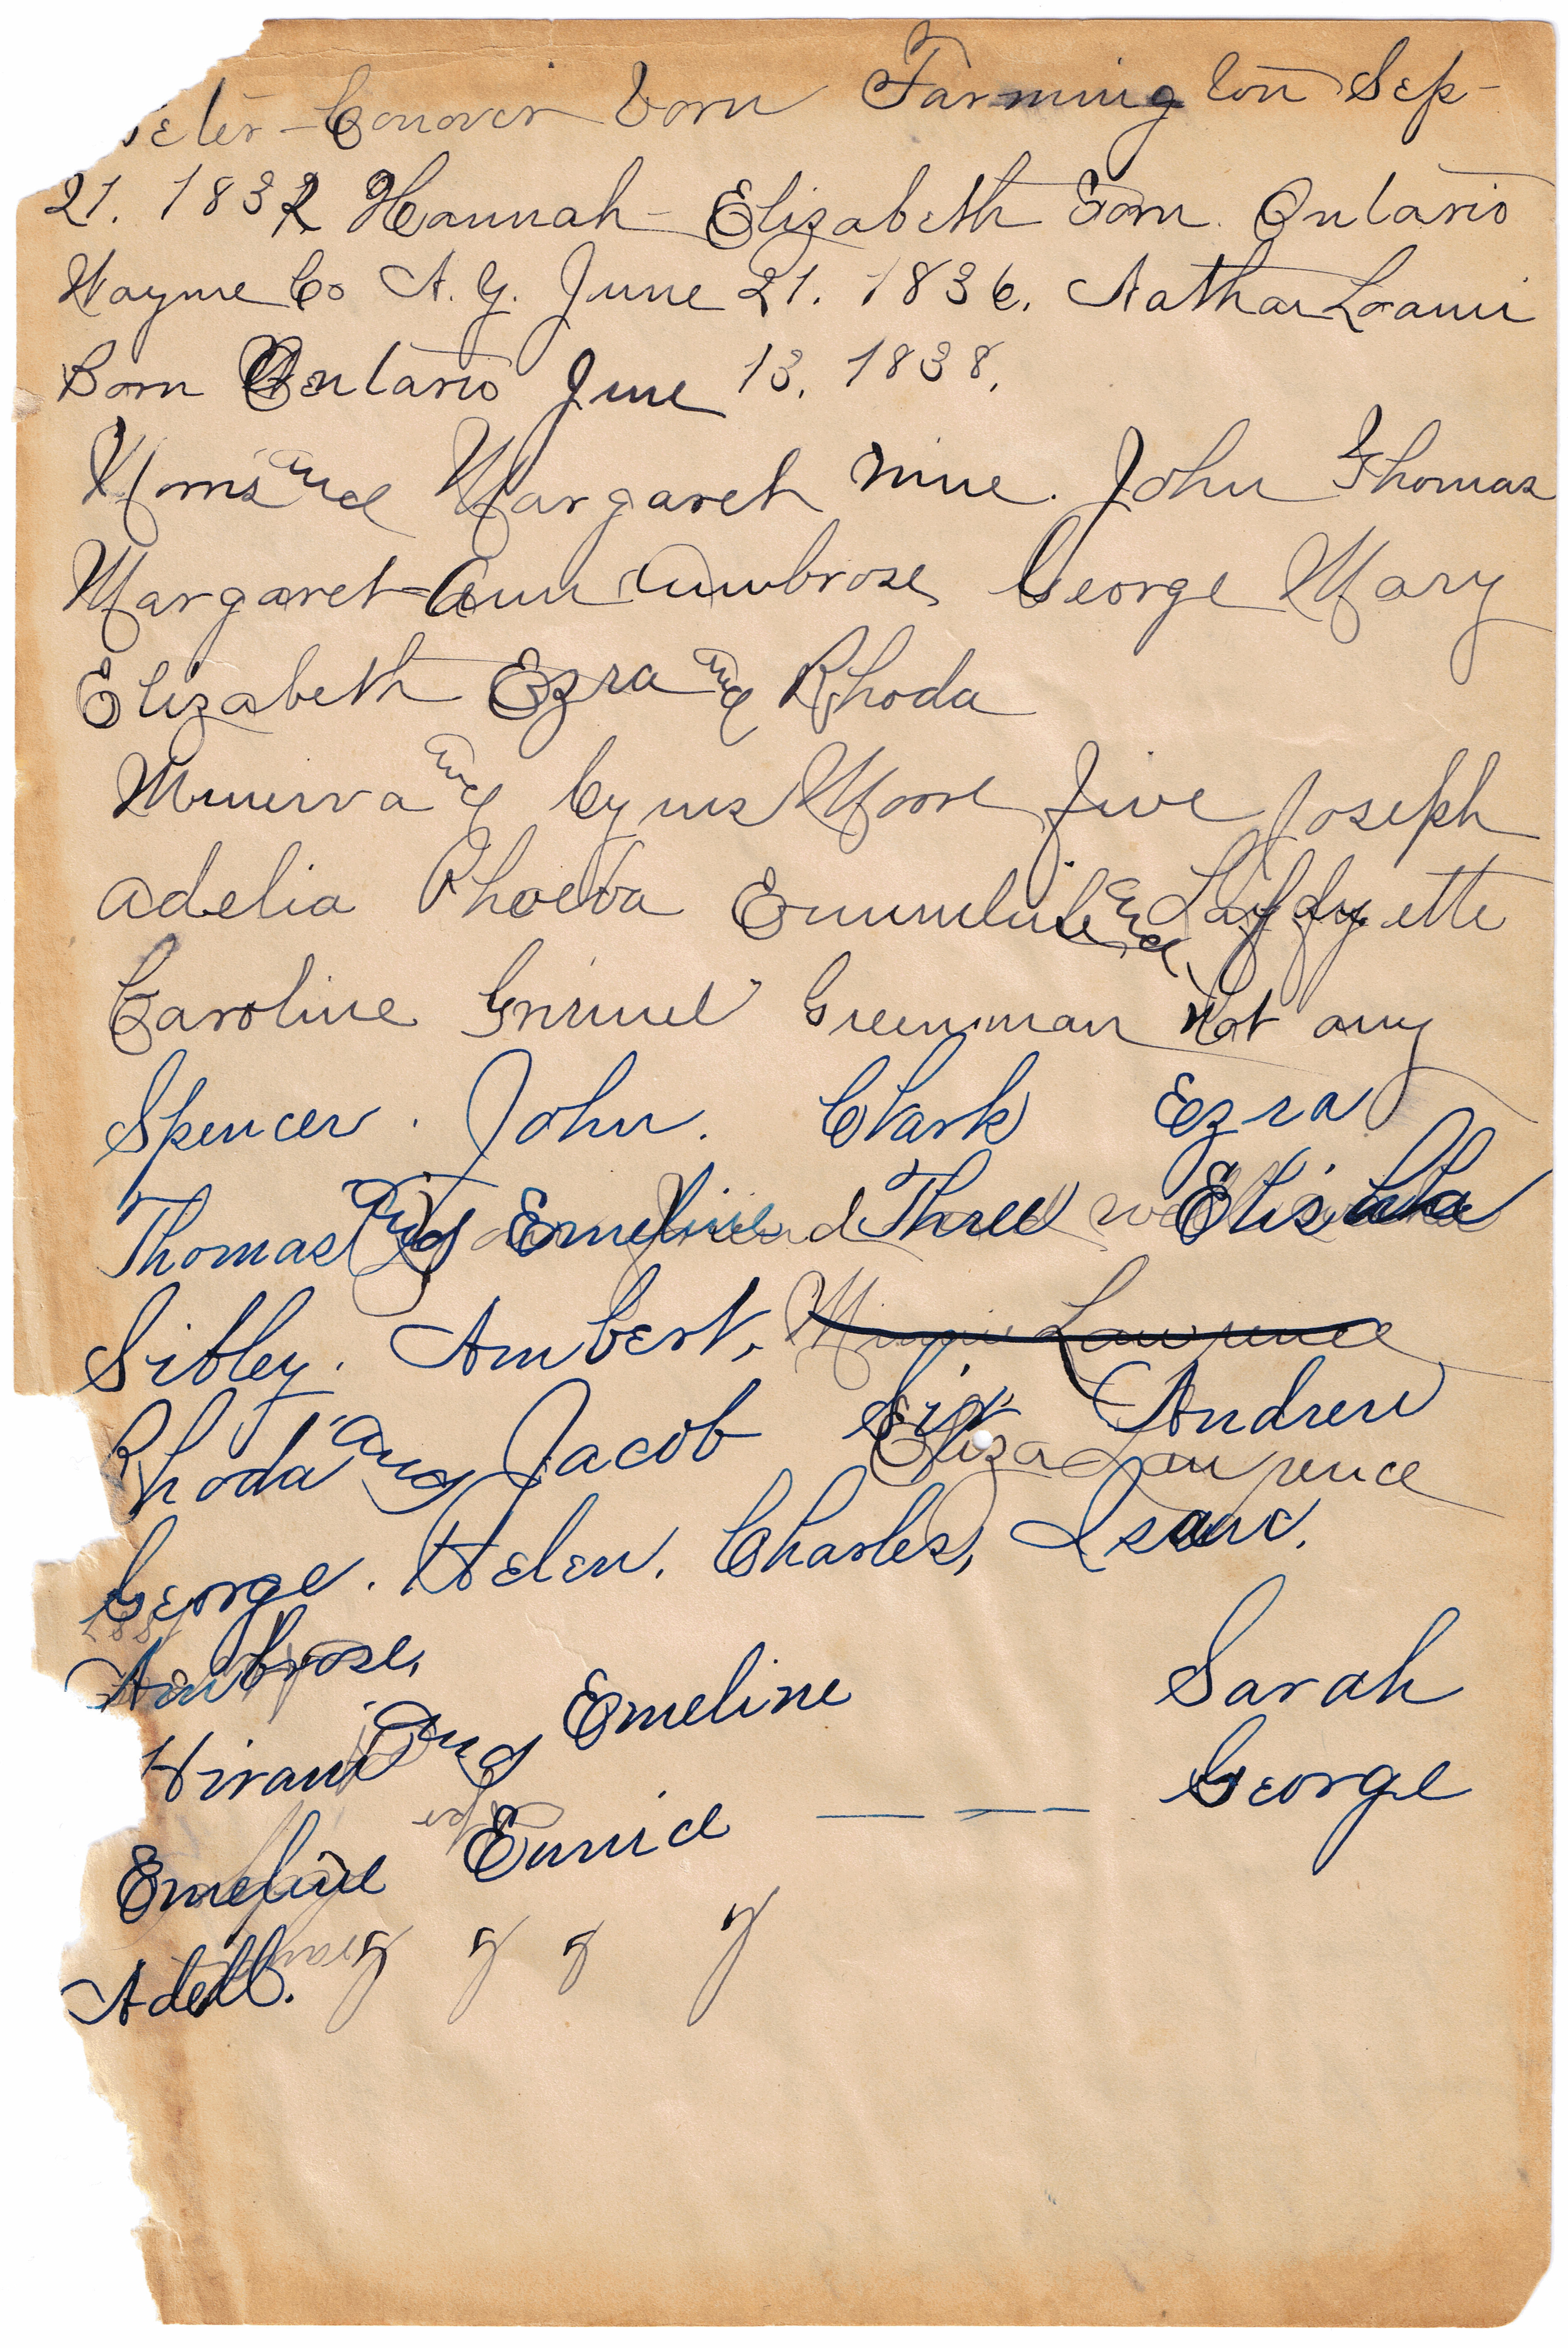 eter - Conover born Farmington Sep-
21. 1832 Hannah - Elizabeth Born. Ontario
Wayne Co N. Y. June 21. 1836. Nathan Loami
Born Ontario June 13. 1838.
Morris and Margaret nine. John Thomas
Margaret-Ann Ambrose George Mary
Elizabeth Ezra and Rhoda
Munerva and Cyrus Moore five Joseph
Adelia Phoeba Emmeline and Laffyette
Caroline Grinnel Greenman Not any
Spencer. John. Clark Ezra
Thomas and Emeline Three Elisha
Sibley. Ambert, Minnie Lawrence
Rhoda and Jacob Six Andrew
Eliza Lawrence
George. Helen. Charles, Isaac.
Ambrose.
Hiram and Emeline Sarah
Emeline Eunice — — — George
Adell. y y y y